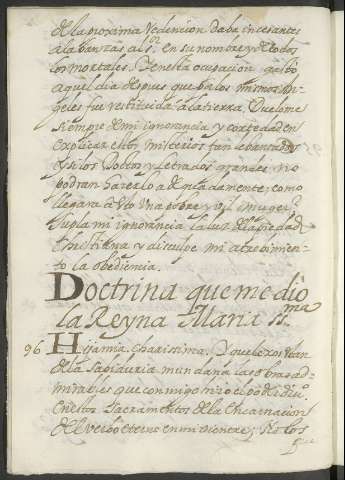 de la proxima Redencion daba incesantes
alabanzas al S.r en su nombre y de todos
los mortales. En esta ocupacion gastó
aquel dia despues que por los mismos An-
geles fue restituida a la tierra. Duelome
siempre de mi ignorancia y cortedad en
explicar estos misterios tan lebantados
y si los Doctos y Letrados grandes no
podran hazerlo adequadamente, como
llegará a esto una pobre y vil muger?
Supla mi ignorancia la luz de la piedad
Christiana, y disculpe mi atrebimien-
to la obediencia.
Doctrina que me dio
la Reyna Maria SS.ma
96 Hija mia, Charissima. Y que lexos estan
de la Sapiduria mundana las obras ad-
mirables que conmigo hizo el poder divi.o
en estos Sacramentos de la Encarnacion
de el verbo eterno en mi vientre; No los